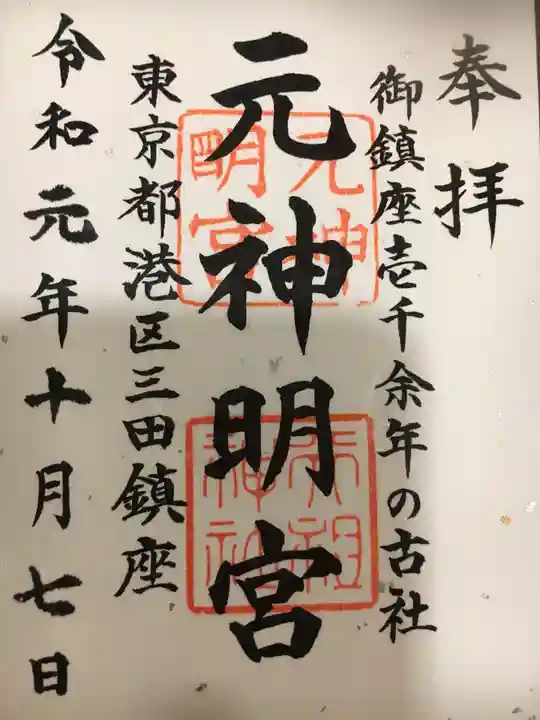 奉拝
御鎮座壱千余年の古社
元神明宮
元神明宮
天祖神社
東京都港区三田鎮座
令和元年十月七日